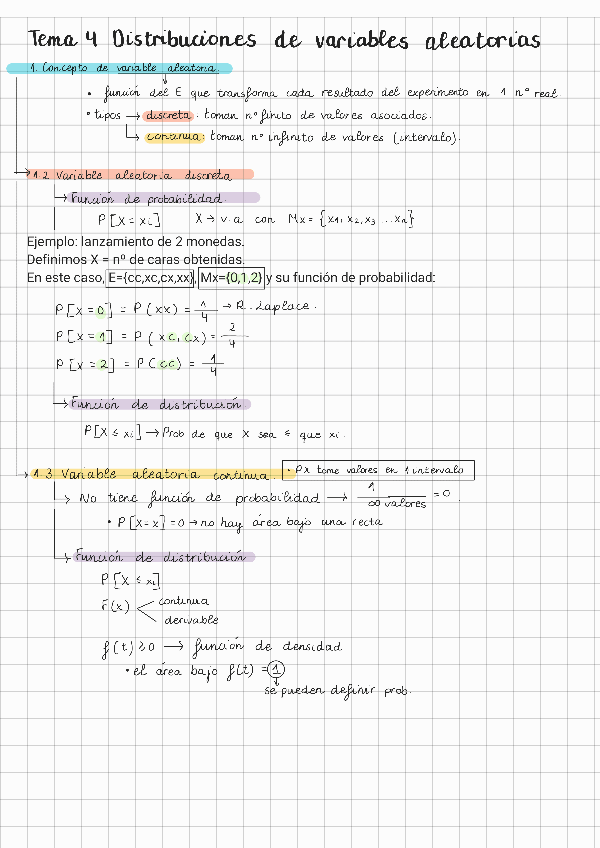 Tema 4 Distribuciones de variables aleatorias
1. Concepto de variable aleatoria.
• función del E que transforma cada resultado del experimento en 1 nº real.
• tipos → discreta: toman nº finito de valores asociados.
↳ continua: toman nº infinito de valores (intervalo).
1.2 Variable aleatoria discreta
→ Función de probabilidad.
P[X = xi] X → v.a con Mx = {x1, x2, x3 ... xn}
Ejemplo: lanzamiento de 2 monedas.
Definimos X = nº de caras obtenidas.
En este caso, E={cc,xc,cx,xx}, Mx={0,1,2} y su función de probabilidad:
P[x = 0] = P(xx) = 1/4 → R. Laplace.
P[x = 1] = P(xc, cx) = 2/4
P[x = 2] = P(cc) = 1/4
→ Función de distribución
P[X ≤ xi] → Prob de que X sea ≤ que xi.
1.3 Variable aleatoria continua. • Px tome valores en 1 intervalo
↳ No tiene función de probabilidad → 1/∞ valores = 0.
• P[X=x] = 0 → no hay área bajo una recta
→ Función de distribución
P[X ≤ xi]
F(x) < continua
derivable
f(t) ≥ 0 → función de densidad.
• el área bajo f(t) = 1
se pueden definir prob.